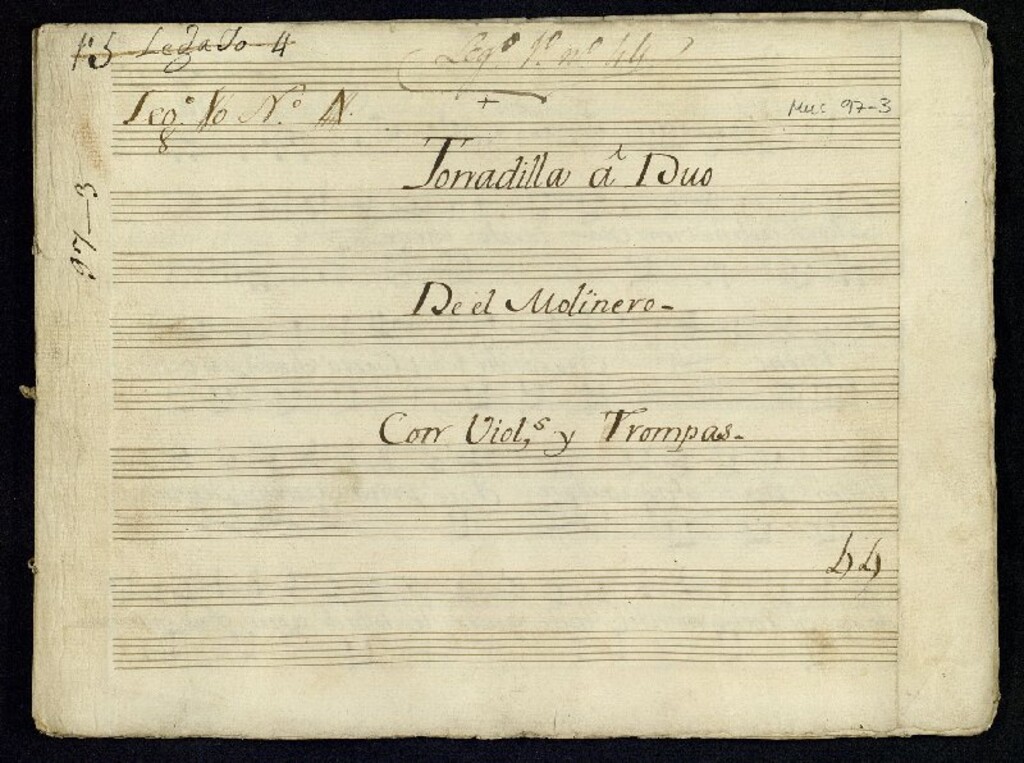 Legado 4
Leg.º 1º nº 44
+
Leg.º N.º
8
Mus 97-3
Tonadilla á Duo
97-3
De el Molinero-
Con Viol,s y Trompas-
44